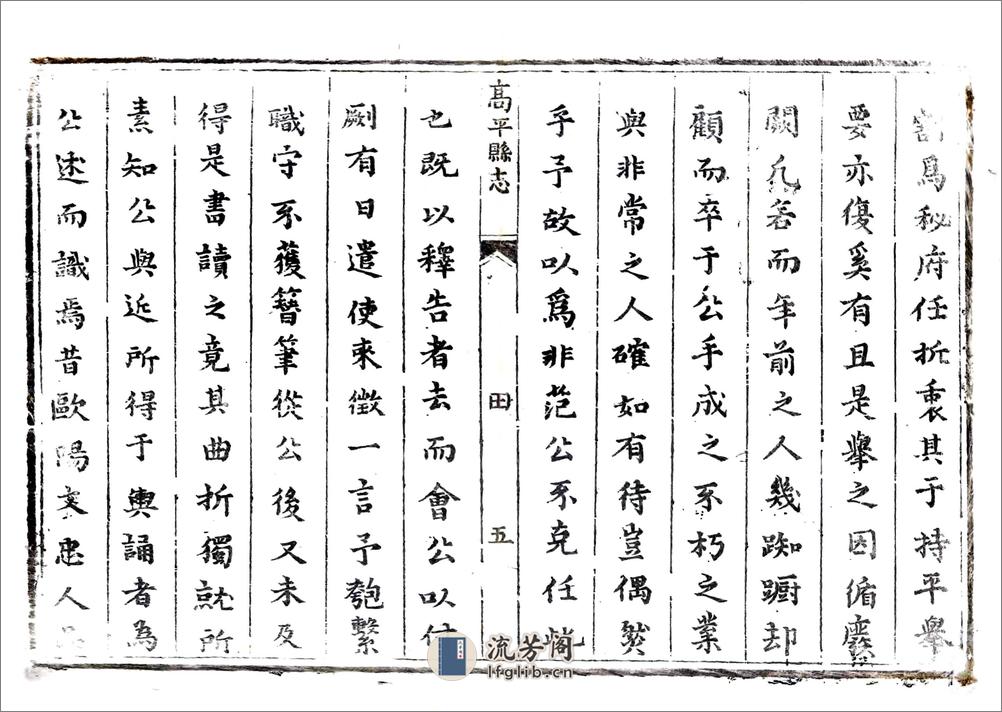 割爲秘府任折衷其于持平舉
要亦復奚有且是舉之因循廢
闕凡若而年前之人幾踟躕却
顧而卒于公手成之不朽之業
與非常之人確如有待豈偶然
乎予故以爲非范公不克任此
高平縣志 田 五
也既以釋告者去而會公以付
劂有日遣使來徵一言予匏繫
職守不獲簪筆從公後又未及
得是書讀之竟其曲折獨就所
素知公與近所得于輿誦者為
公述而識焉昔歐陽文忠人
流芳閣
lfglib.cn